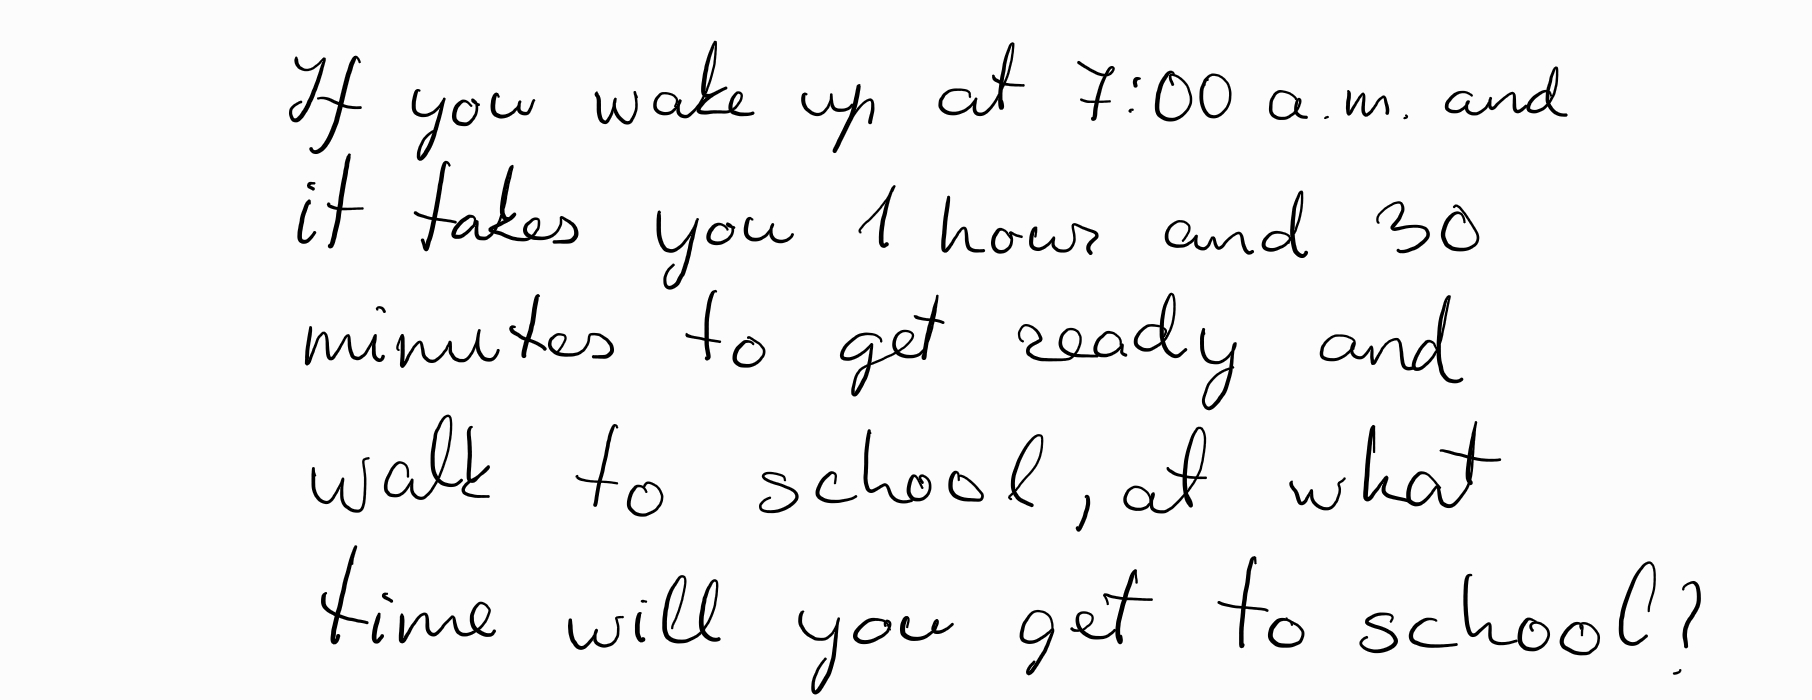 If you wake up at 7:00 a.m. and
it takes you 1 hour and 30
minutes to get ready and
walk to school, at what
time will you get to school?